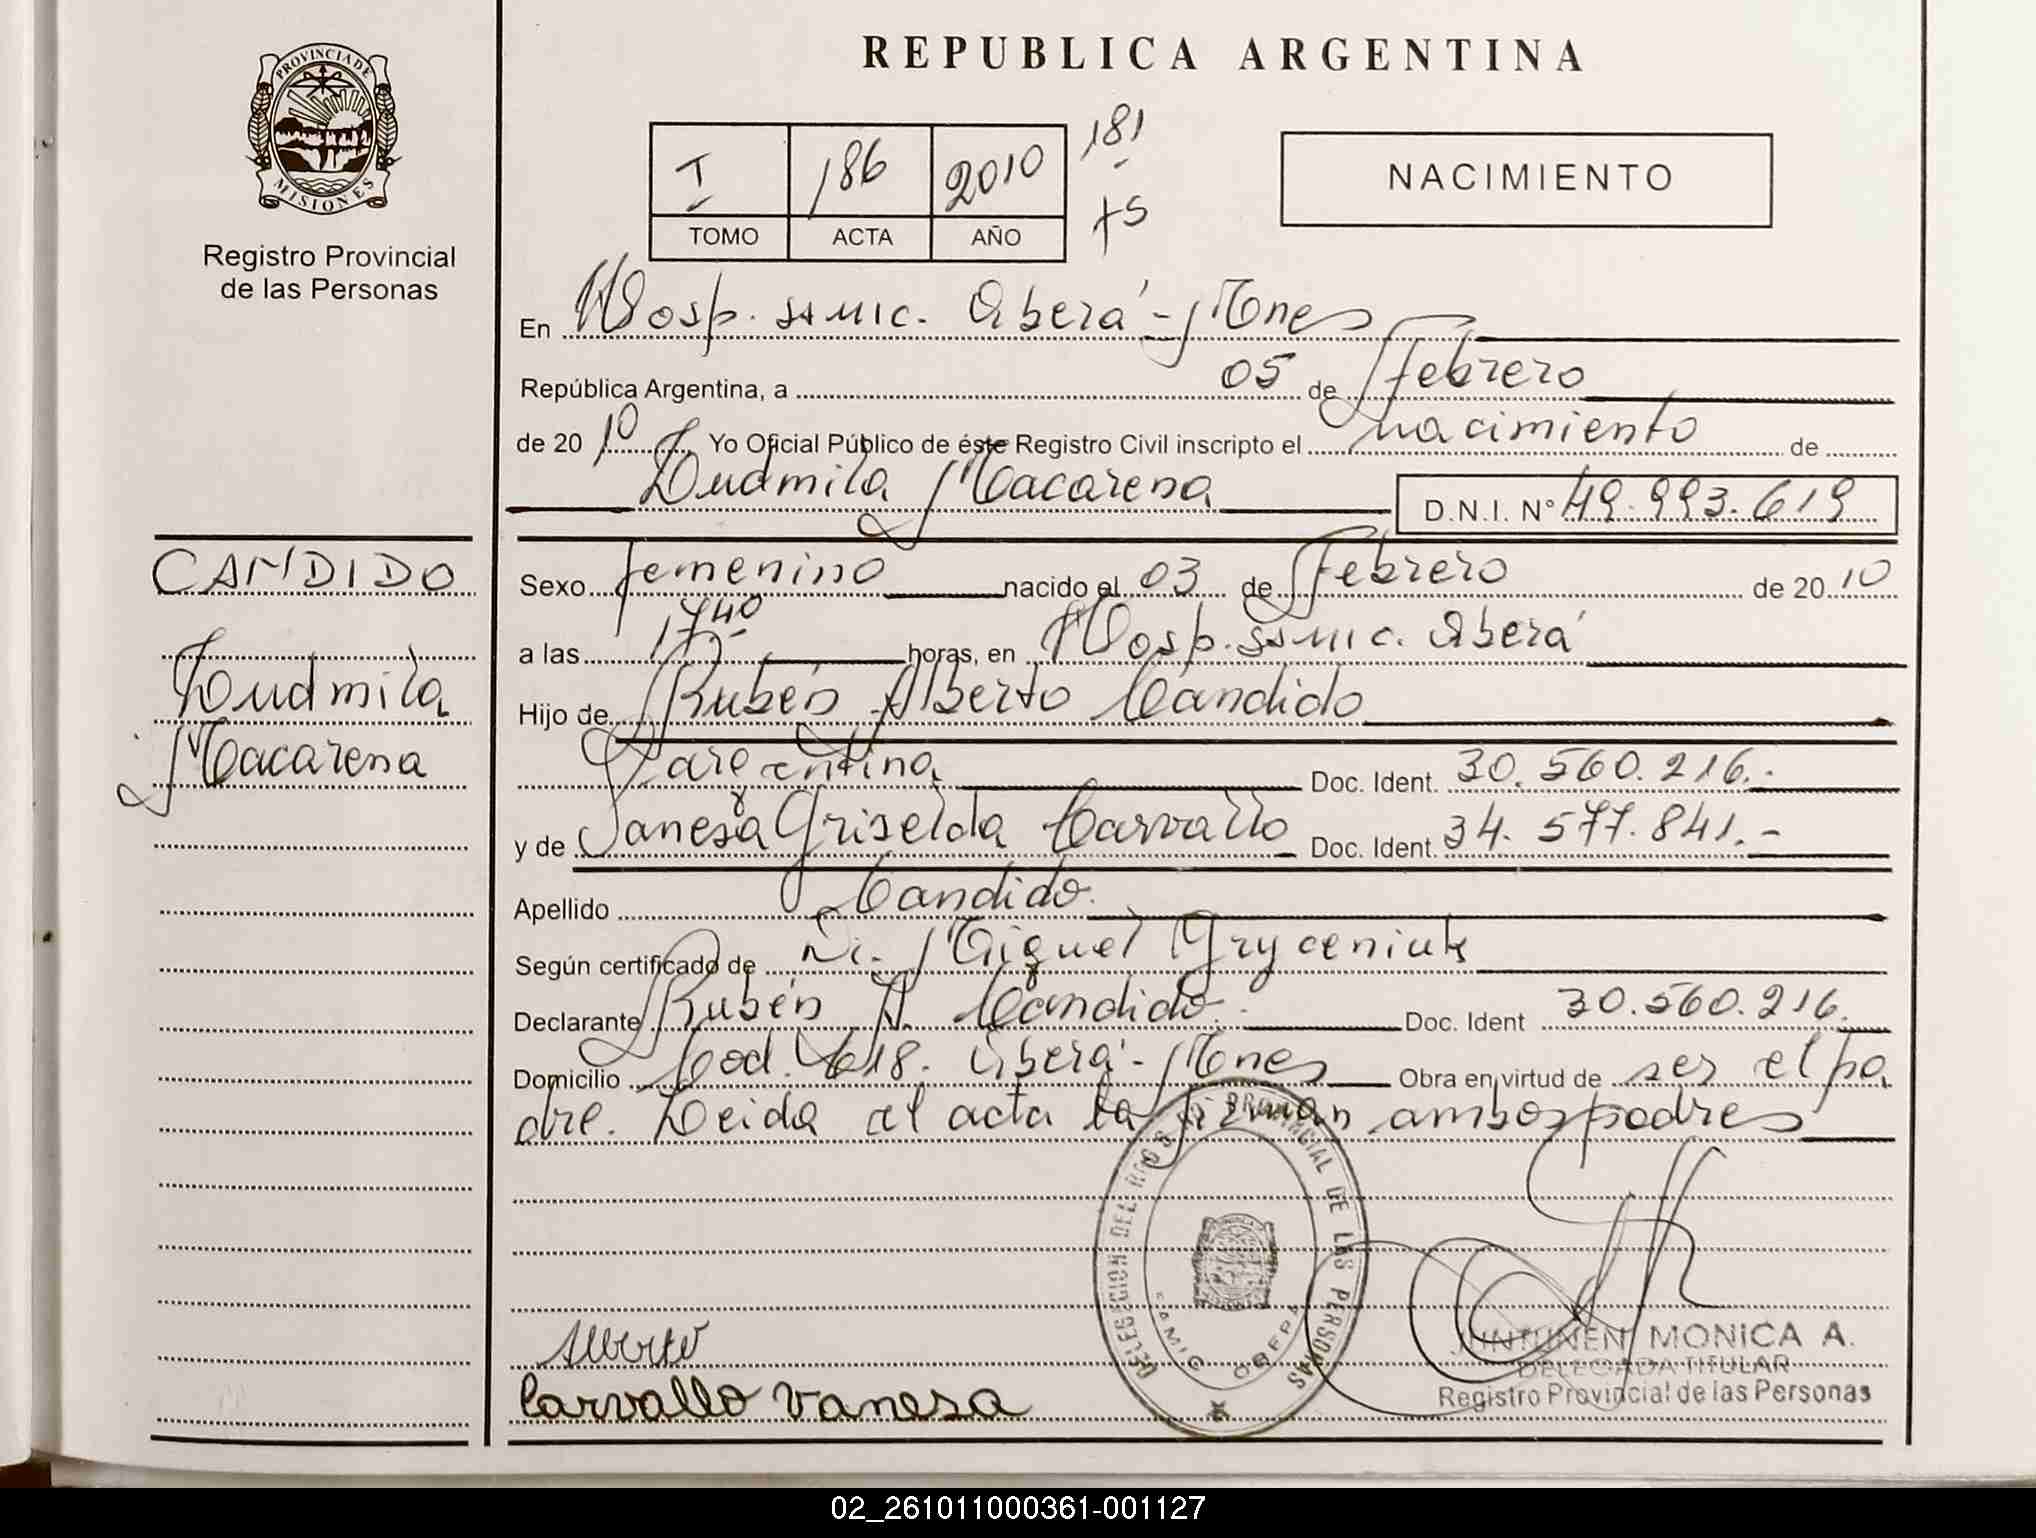 REPUBLICA ARGENTINA
PROVINCIA DE
MISIONES
Registro Provincial
de las Personas
I 186 2010 181
TOMO ACTA AÑO
NACIMIENTO
En Hosp. ssmic. Oberá - Mnes
República Argentina, a 05 de Febrero
de 2010 Yo Oficial Público de éste Registro Civil inscripto el nacimiento de
Ludmila Macarena D.N.I. Nº 49.993.619
CANDIDO
Ludmila
Macarena
Sexo femenino nacido el 03 de Febrero de 2010
a las 17 40 horas, en Hosp. ssmic. Oberá
Hijo de Rubén Alberto Candido
argentina Doc. Ident. 30.560.216.-
y de Vanesa Griselda Carvallo Doc. Ident. 34.577.841.-
Apellido Candido.
Según certificado de Dr. Miguel Gryceniuk
Declarante Rubén A. Candido.- Doc. Ident 30.560.216.
Domicilio Cod. 618. Oberá - Mnes Obra en virtud de ser el pa
dre. Leida el acta la firman ambos padres
DELEGACION DEL REGIS PROVINCIAL DE LAS PERSONAS
OBERA
Alberto
Carvallo Vanesa
MONICA A.
DELEGADA TITULAR
Registro Provincial de las Personas
02_261011000361-001127